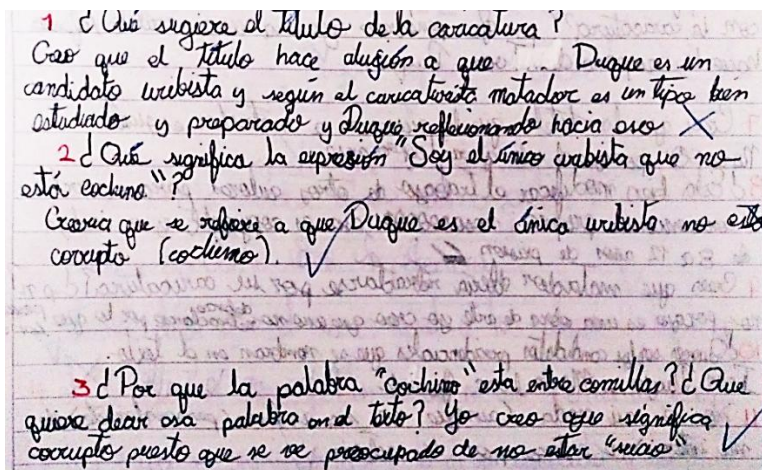 1 ¿Qué sugiere el título de la caricatura?
Creo que el título hace alusión a que Duque es un
candidato uribista y según el caricaturista matador es un tipo bien
estudiado y preparado y Duque reflexionando hacia eso X
2 ¿Qué significa la expresión "Soy el único urabista que no
está cochino"?
Creería que se refiere a que Duque es el único uribista no está
corrupto (cochino). ✓
3 ¿Por que la palabra "cochino" esta entre comillas? ¿Que
quiere decir esa palabra en el texto? Yo creo que significa
corrupto puesto que se ve preocupado de no estar "sucio" ✓